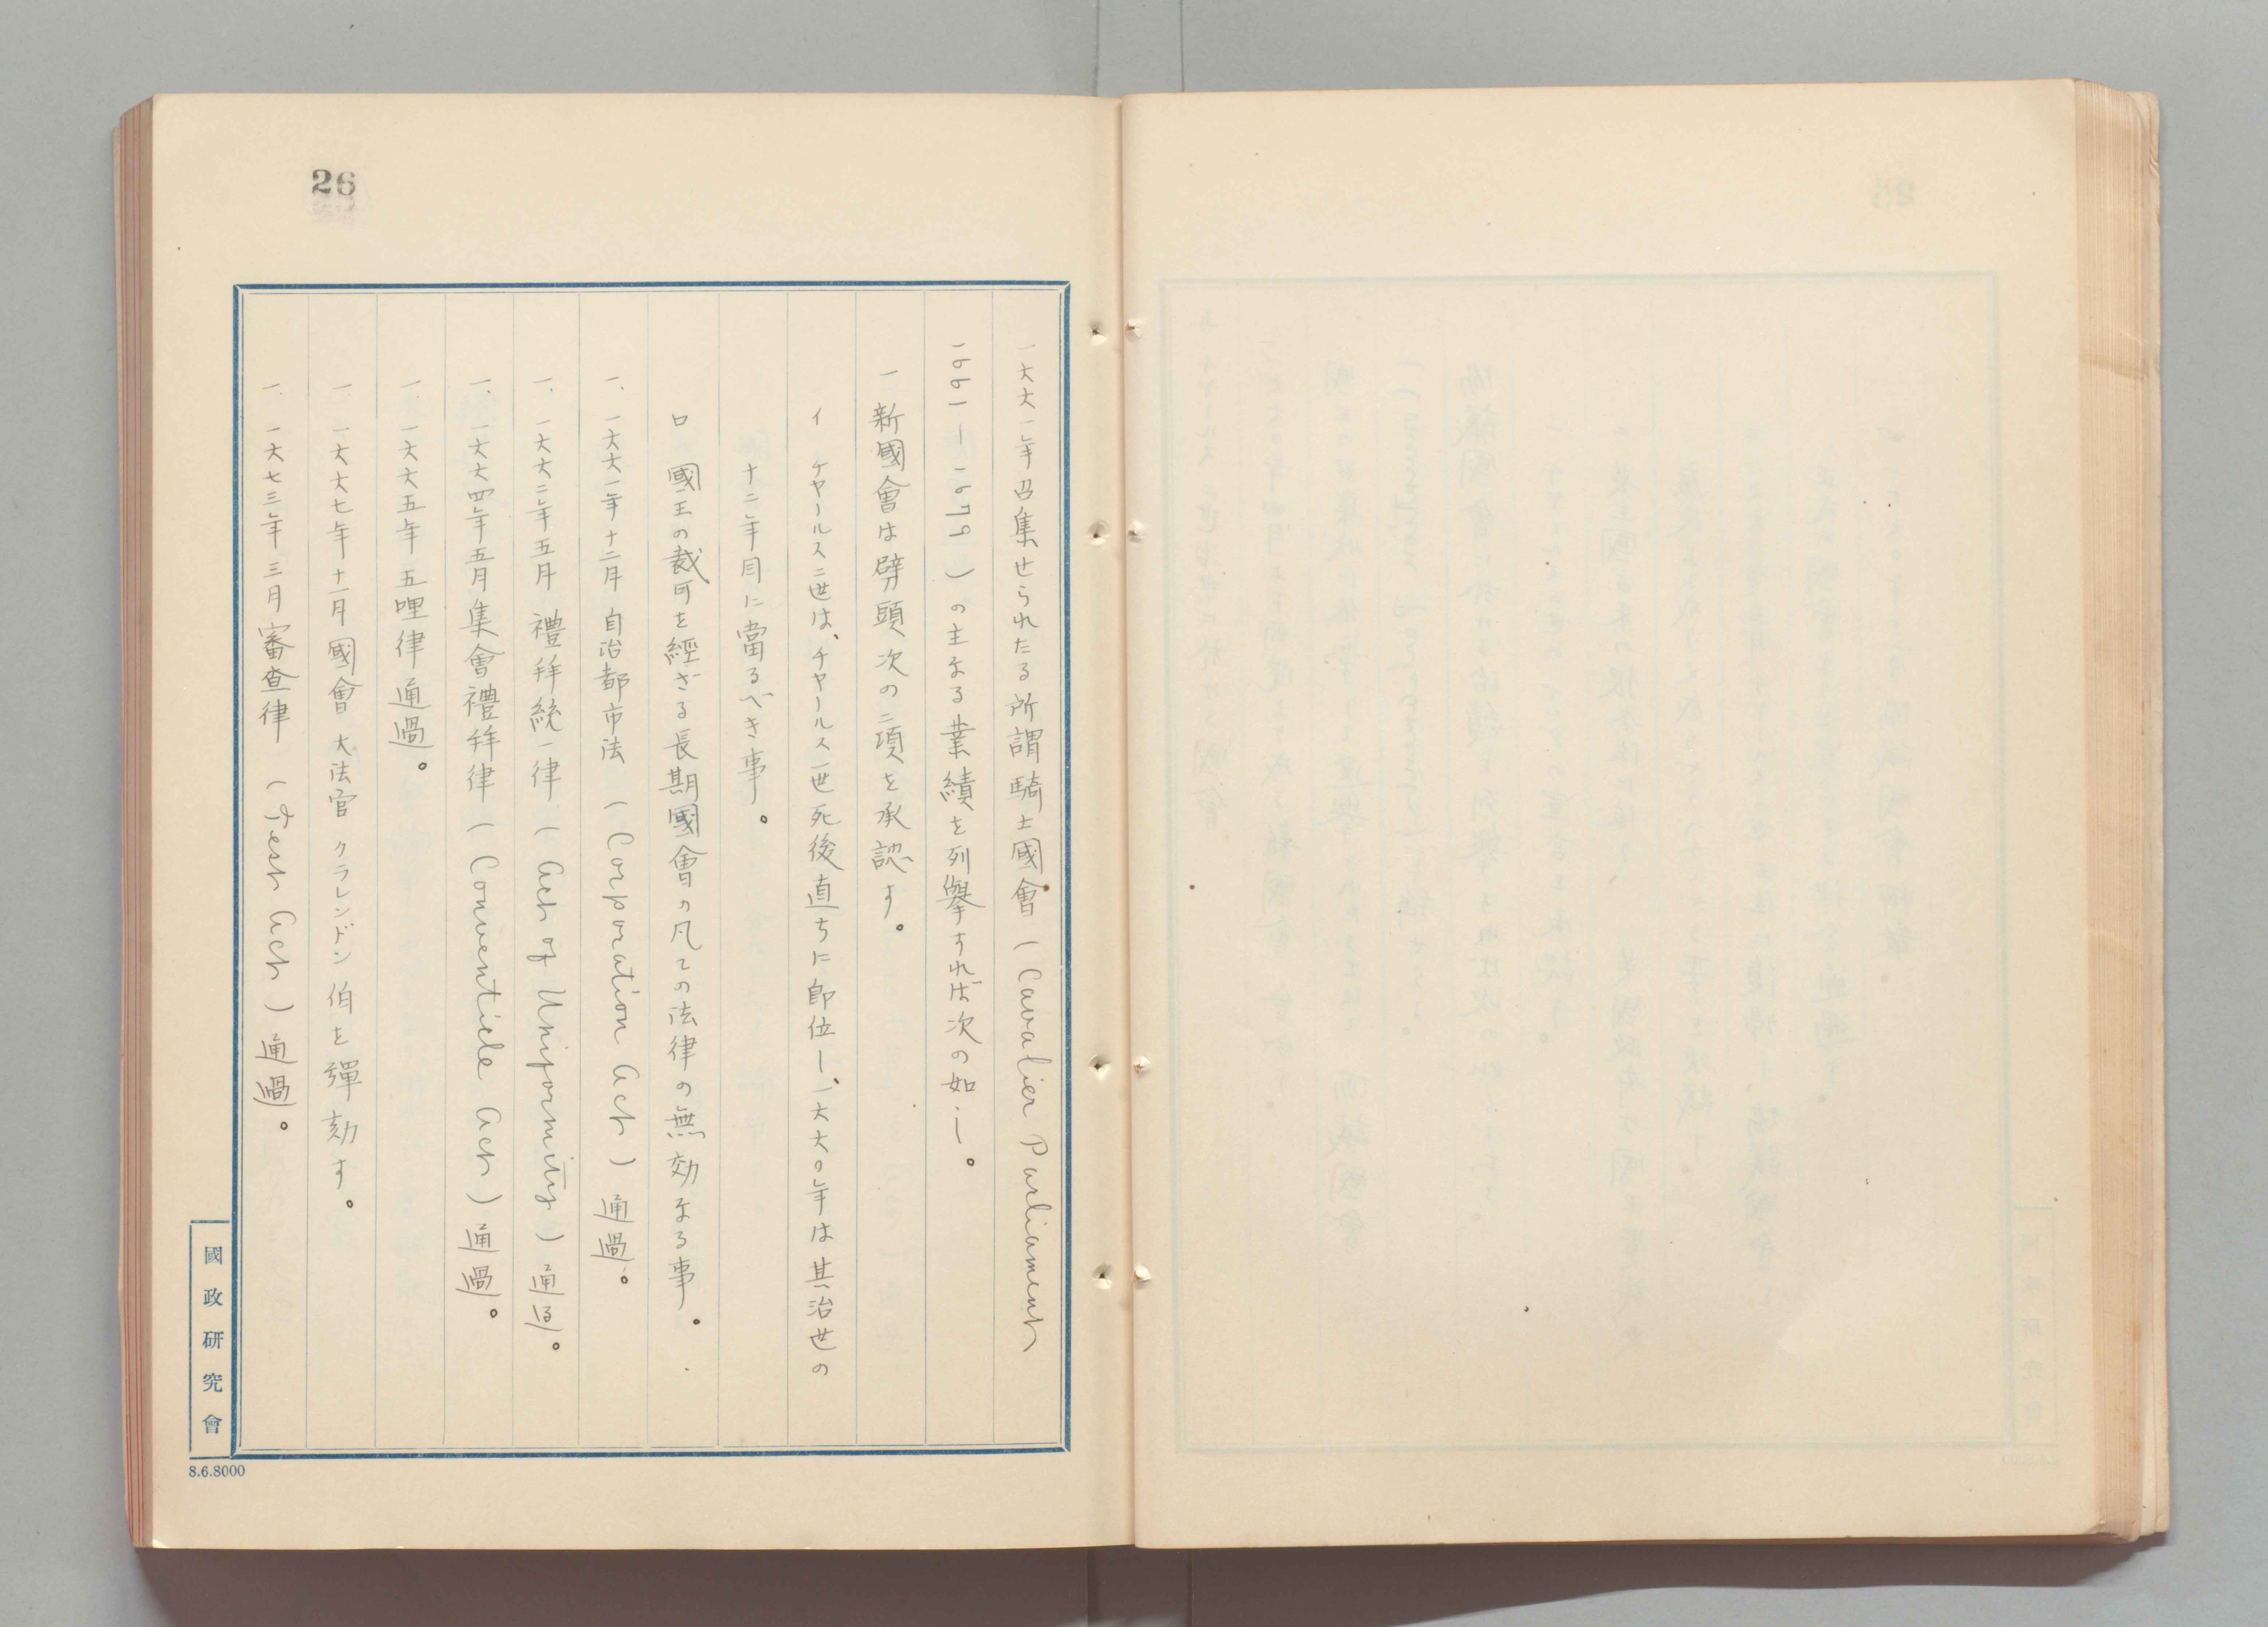 26
一六六一年召集せられたる所謂騎士國會(Cavalier Parliament
1661－1679)の主なる業績を列擧すれば次の如し。
一 新國會は劈頭次の二項を承認す。
イ チヤールス二世は、チヤールス一世死後直ちに卽位し、一六六〇年は其治世の
十二年目に當るべき事。
ロ 國王の裁可を經ざる長期國會の凡ての法律の無効なる事。
一. 一六六一年十二月 自治都市法 (Corporation Act) 通過。
一. 一六六二年五月 禮拜統一律 (Act of Uniformity) 通過。
一. 一六六四年五月 集會禮拜律 (Conventicle Act) 通過。
一. 一六六五年 五哩律通過。
一. 一六六七年十一月 國會 大法官 クラレンドン 伯を彈劾す。
一. 一六七三年三月 審査律 (Test Act) 通過。
國政研究會
8.6.8000